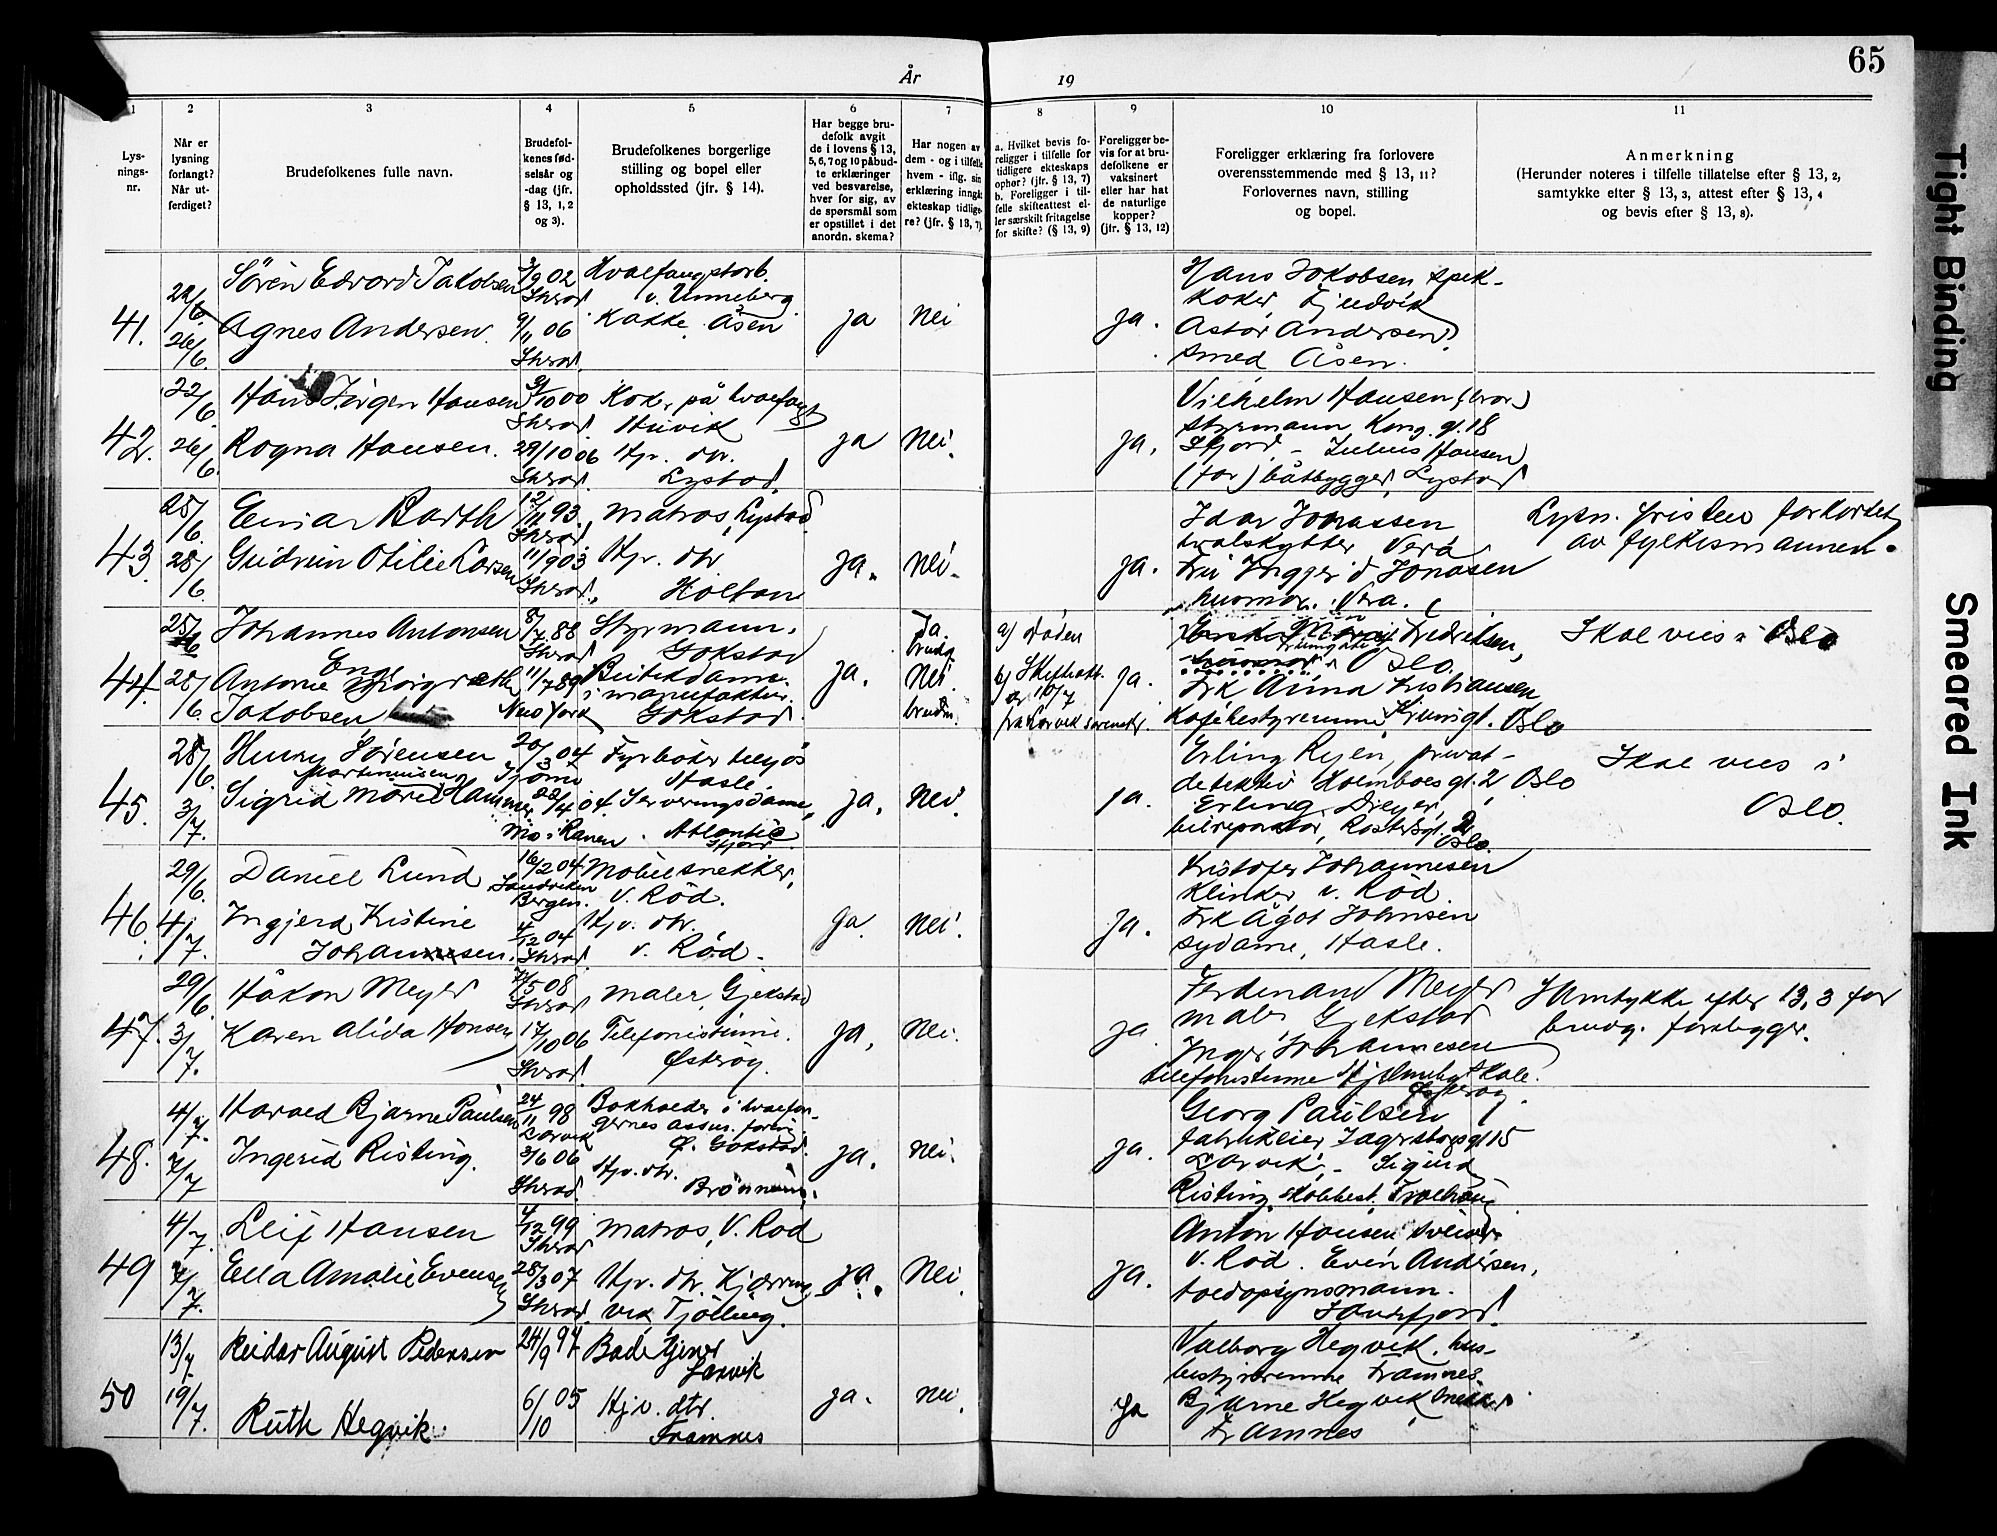 65
År
19
1
2
3
4
5
6
7
8
9
10
11
Lys-
nings-
nr.
Når er
lysning
forlangt?
Når ut-
ferdiget?
Brudefolkenes fulle navn.
Brudefol-
kenes fød-
selsår og
-dag (jfr.
§ 13, 1, 2
og 3).
Brudefolkenes borgerlige
stilling og bopel eller
opholdssted (jfr. § 14).
Har begge bru-
defolk avgit
de i lovens § 13,
5, 6, 7 og 10 påbud-
te erklæringer
ved besvarelse,
hver for sig, av
de spørsmål som
er opstillet i det
anordn. skema?
Har nogen av
dem - og i tilfelle
hvem - iflg. sin
erklæring inngått
ekteskap tidlige-
re? (jfr. § 13, 7).
a. Hvilket bevis fo-
religger i tilfelle for
tidligere ekteskaps
ophør? (jfr. § 13, 7)
b. Foreligger i til-
felle skifteattest el-
ler særskilt fritagelse
for skifte? (§ 13, 9)
Foreligger be-
vis for at bru-
defolkene er
vaksinert
eller har hat
de naturlige
kopper?
(jfr. § 13, 12)
Foreligger erklæring fra forlovere
overensstemmende med § 13, 11?
Forlovernes navn, stilling
og bopel.
Anmerkning
(Herunder noteres i tilfelle tillatelse efter § 13, 2,
samtykke efter § 13, 3, attest efter § 13, 4
og bevis efter § 13, 8).
41.
22/6.
26/6.
Sören Edvard Jakobsen
Agnes Andersen.
3/9 02
Shrad
9/11 06
Shrad.
Hvalfangstarb.
v. Unneberg
Kokke Åsen
ja
nei
ja.
Hans Jakobsen spek-
koker Fjeldvik
Astor Andersen
smed Åsen.
42.
22/6.
26/6.
Hans Jörgen Hansen
Ragna Hansen.
3/10 00
Shrad
29/10 06
Shrad.
Kok, på hvalfangst
Huvik
Hjv. dtr.
Lystad.
ja
nei.
ja.
Vilhelm Hansen (bror)
styrmann Kong. gt. 18
Sfjord. - Julius Hansen
(far) båtbygger, Lystad
43.
25/6.
28/6.
Einar Barth
Gudrun Otilie Larsen
12/11 93.
Shrad,
11/9 03
Shrad.
matros, Lystad
Hjv. dtr
Holtan
ja.
nei.
ja.
Idar Jonassen
hvalskytter Vera
fru Inggerd Jonasen
husmor. Vera.
Lysn. fristen forkortet
av fylkesmannen.
44.
25/6
28/6.
Johannes Antonsen
Enge
Antonie Margreth
Jakobsen
8/7 88
Shrad
11/7 89
New York
Styrmann.
Gokstad
Butikdame
i manufaktur.
Gokstad.
ja.
Ja
brudg.
Nei.
brudn.
a) döden
b) Skifteatt.
av 16/7
fra Larvik sorenskr.
ja.
Fredriksen,
Oslo.
Frk Anna Kristiansen
kafébestyrerinne, Oslo
Skal vies i Oslo
45.
28/6.
3/7.
Henry Sörensen
Martinniusen
Sigrid Marie Hammer
20/3 04
Tjöme
22/4 04
Mo i Ranen
Fyrböter
Hasle.
Serveringsdame,
Atlantic
Sfjord
ja.
nei.
ja.
Erling Ryen, privat-
detektiv Holmboesgt. 2 Oslo
Erling Dreyer,
bilreparatör, Oslo.
Skal vies i
Oslo.
46.
29/6.
4/7.
Daniel Lund
Ingjerd Kristine
Johannesen.
16/2 04
Sandviken
Bergen.
4/12 04
Shrad.
Möbelsnekker,
v. Röd.
Hjv. dtr.
v. Röd.
ja.
nei.
ja.
Kristofer Johannesen
klinker v. Röd.
Frk Ågot Johnsen
sydame, Hasle.
47.
29/6.
3/7.
Håkon Meyer
Karen Alida Hansen
5 08
Shrad
17/10 06
Shrad.
maler, Gjekstad
Telefonistinne.
Österöy.
ja,
nei.
ja.
Ferdinand Meyer
maler Gjekstad
Inger Johannesen
telefonistinne
Österöy.
Samtykke efter 13, 3 for
brudg. forebygger.
48.
4/7.
7/7
Harald Bjarne Paulsen
Ingerid Risting.
24/11 98
Larvik
3/6 06
Shrad.
Bokholder i hvalfan-
gernes assur. foren.
Ö. Gokstad.
Hjv. dtr.
ja.
nei.
ja.
Georg Paulsen
fabrikkeier, Jagersborgsgt 15
Larvik. - Sigurd
Risting,
49
4/7.
7/7.
Leif Hansen
Ella Amalie Evensen
4/12 99
Shrad
28/3 07
Shrad.
matros, V. Röd
Hjv. dtr. Kjærring-
vik Tjölling.
ja.
nei.
ja.
Anton Hansen sveiser
V. Röd. Even Andersen,
toldopsynsmann.
Sandefjord.
50
13/7
19/7.
Reidar August Pedersen
Ruth Hegvik
24/9 97
6/10 05
Badetjener
Larvik
Hjv. dtr.
Framnes
ja.
nei.
ja
Valborg Hegvik, hus-
bestyrerinne Framnes
Bjarne Hegvik snekker
Framnes
Tight Binding
Smeared Ink